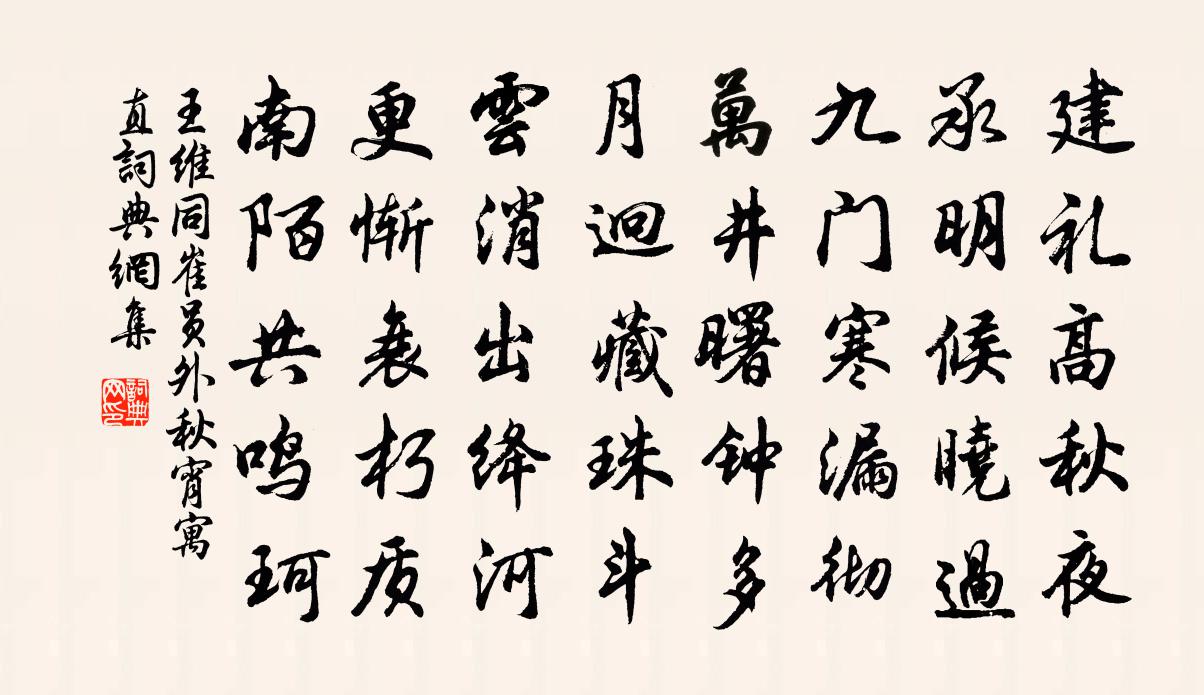 建礼高秋夜
承明候曉過
九门寒漏彻
萬井曙钟多
月迥藏珠斗
雲消出绛河
更惭衰朽质
南陌共鸣珂
王维同崔员外秋宵寓
直詞典網集
詞典
网印